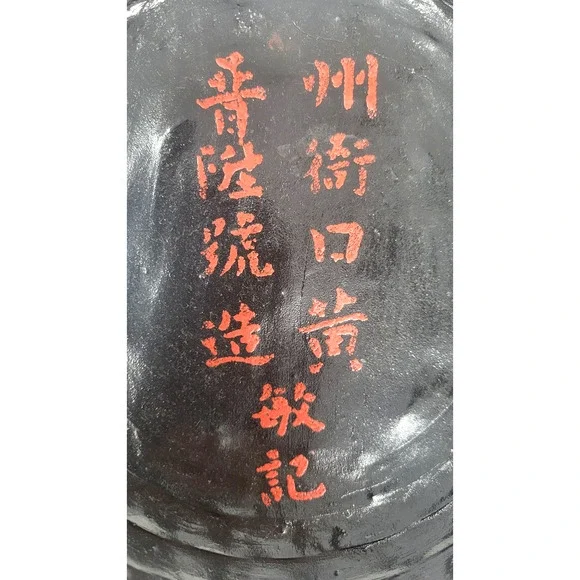 州衙口黄
敏記
晋陞號造